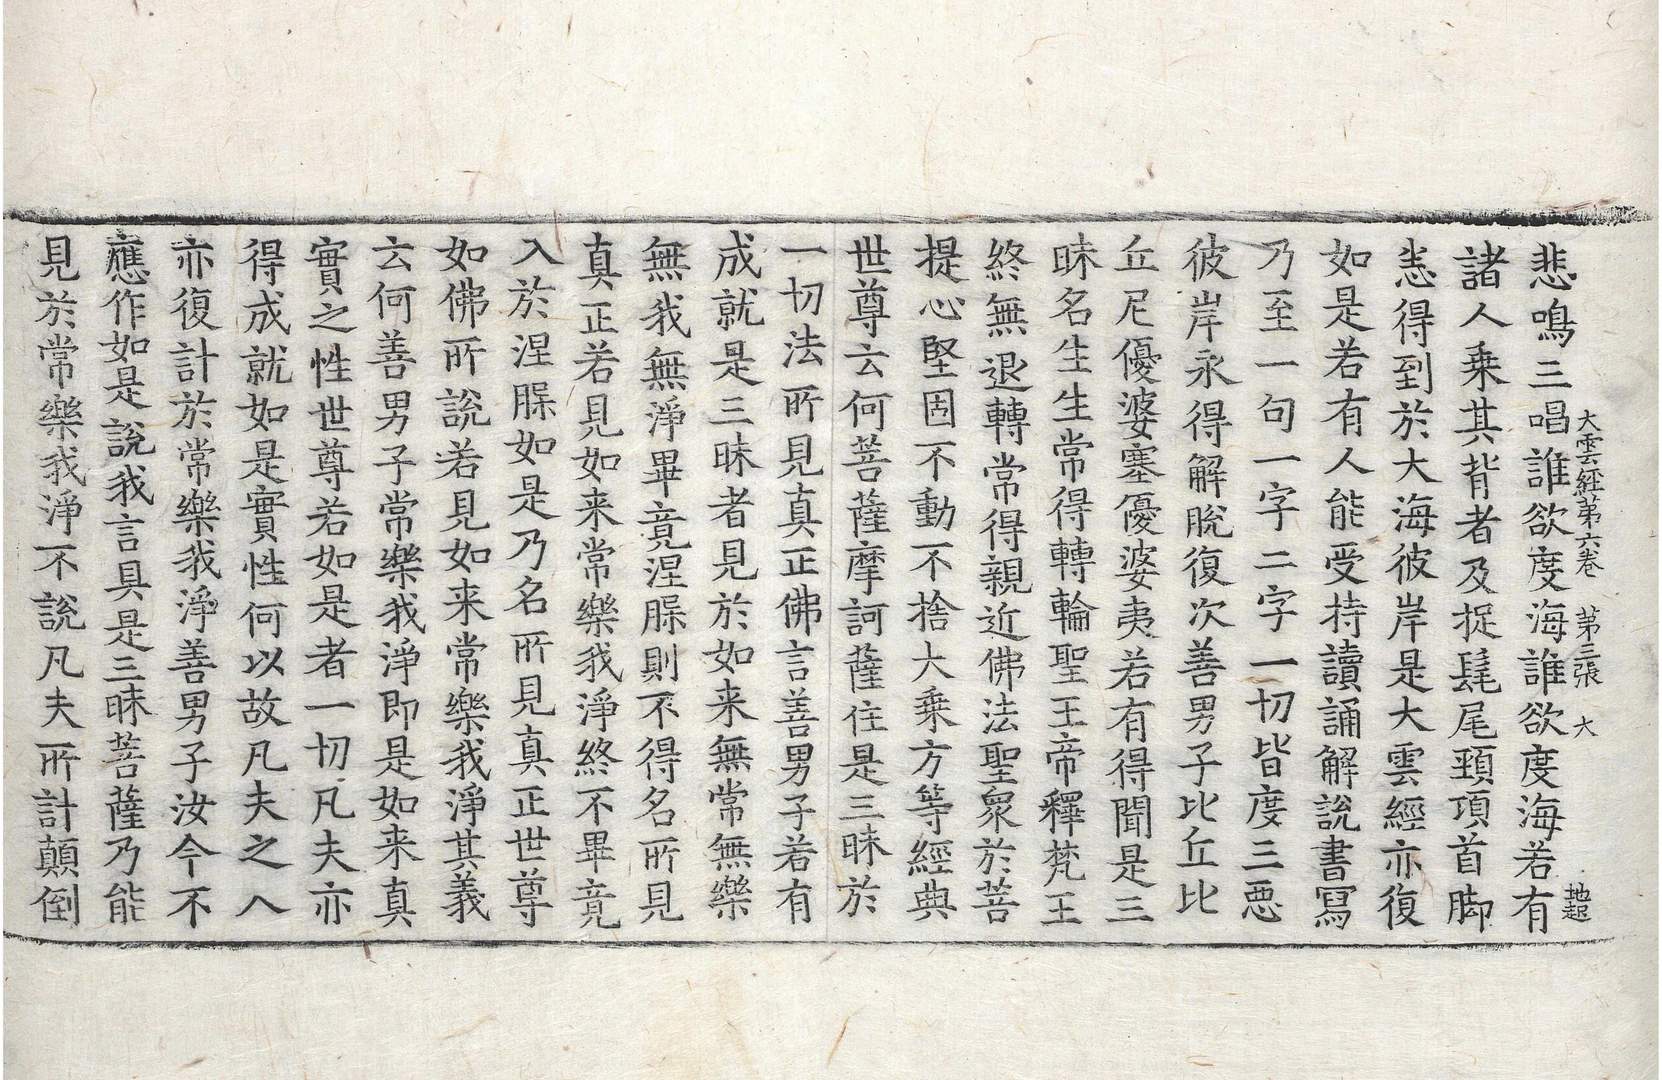 大雲經第六卷 第三張 大
悲鳴三唱誰欲度海誰欲度海若有
諸人乗其背者及捉髦尾頸項首脚
悉得到於大海彼岸是大雲經亦復
如是若有人能受持讀誦解說書寫
乃至一句一字二字一切皆度三惡
彼岸永得解脫復次善男子比丘比
丘尼優婆塞優婆夷若有得聞是三
昧名生生常得轉輪聖王帝釋梵王
終無退轉常得親近佛法聖衆於菩
提心堅固不動不捨大乗方等經典
世尊云何菩薩摩訶薩住是三昧於
一切法所見真正佛言善男子若有
成就是三昧者見於如来無常無樂
無我無淨畢竟涅槃則不得名所見
真正若見如来常樂我淨終不畢竟
入於涅槃如是乃名所見真正世尊
如佛所說若見如来常樂我淨其義
云何善男子常樂我淨即是如来真
實之性世尊若如是者一切凡夫亦
得成就如是實性何以故凡夫之人
亦復計於常樂我淨善男子汝今不
應作如是說我言具是三昧菩薩乃能
見於常樂我淨不說凡夫所計顛倒